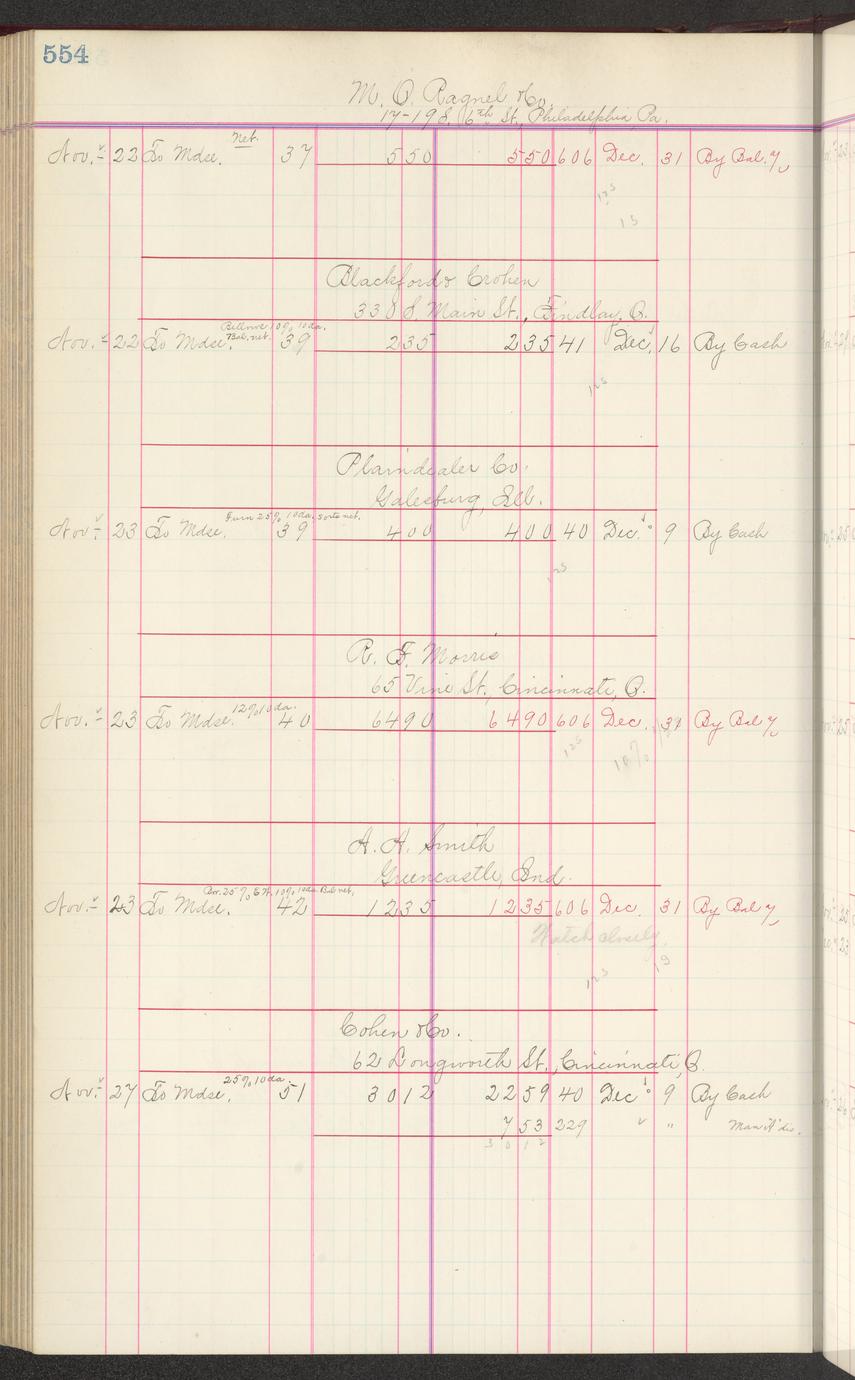 554
M. O. Ragnel & Co.
17-19 S. 6th St., Philadelphia, Pa.
Net.
Nov. 22 To Mdse. 37 550 550 606 Dec. 31 By Bal.
125
15
Blackford & Crohen
330 S. Main St., Findlay, O.
10% 10 da.
Bal. net.
Nov. 22 To Mdse. 39 235 235 41 Dec. 16 By Cash
125
Plaindealer Co.
Galesburg, Ill.
Furn 25% 10 da. Sorts net.
Nov. 23 To Mdse. 39 400 400 40 Dec. 9 By Cash
125
R. F. Morris
65 Vine St., Cincinnati, O.
12% 10 da.
Nov. 23 To Mdse. 40 6490 6490 606 Dec. 31 By Bal
125
10%
A. A. Smith
Greencastle, Ind.
25% 10% 10 da. Bal net.
Nov. 23 To Mdse. 42 1235 1235 606 Dec. 31 By Bal
Watch closely
19
125
Cohen & Co.
62 Longworth St., Cincinnati, O.
25% 10 da.
Nov. 27 To Mdse. 51 3012 2259 40 Dec. 9 By Cash
753 229 " Man'f'dis.
3012